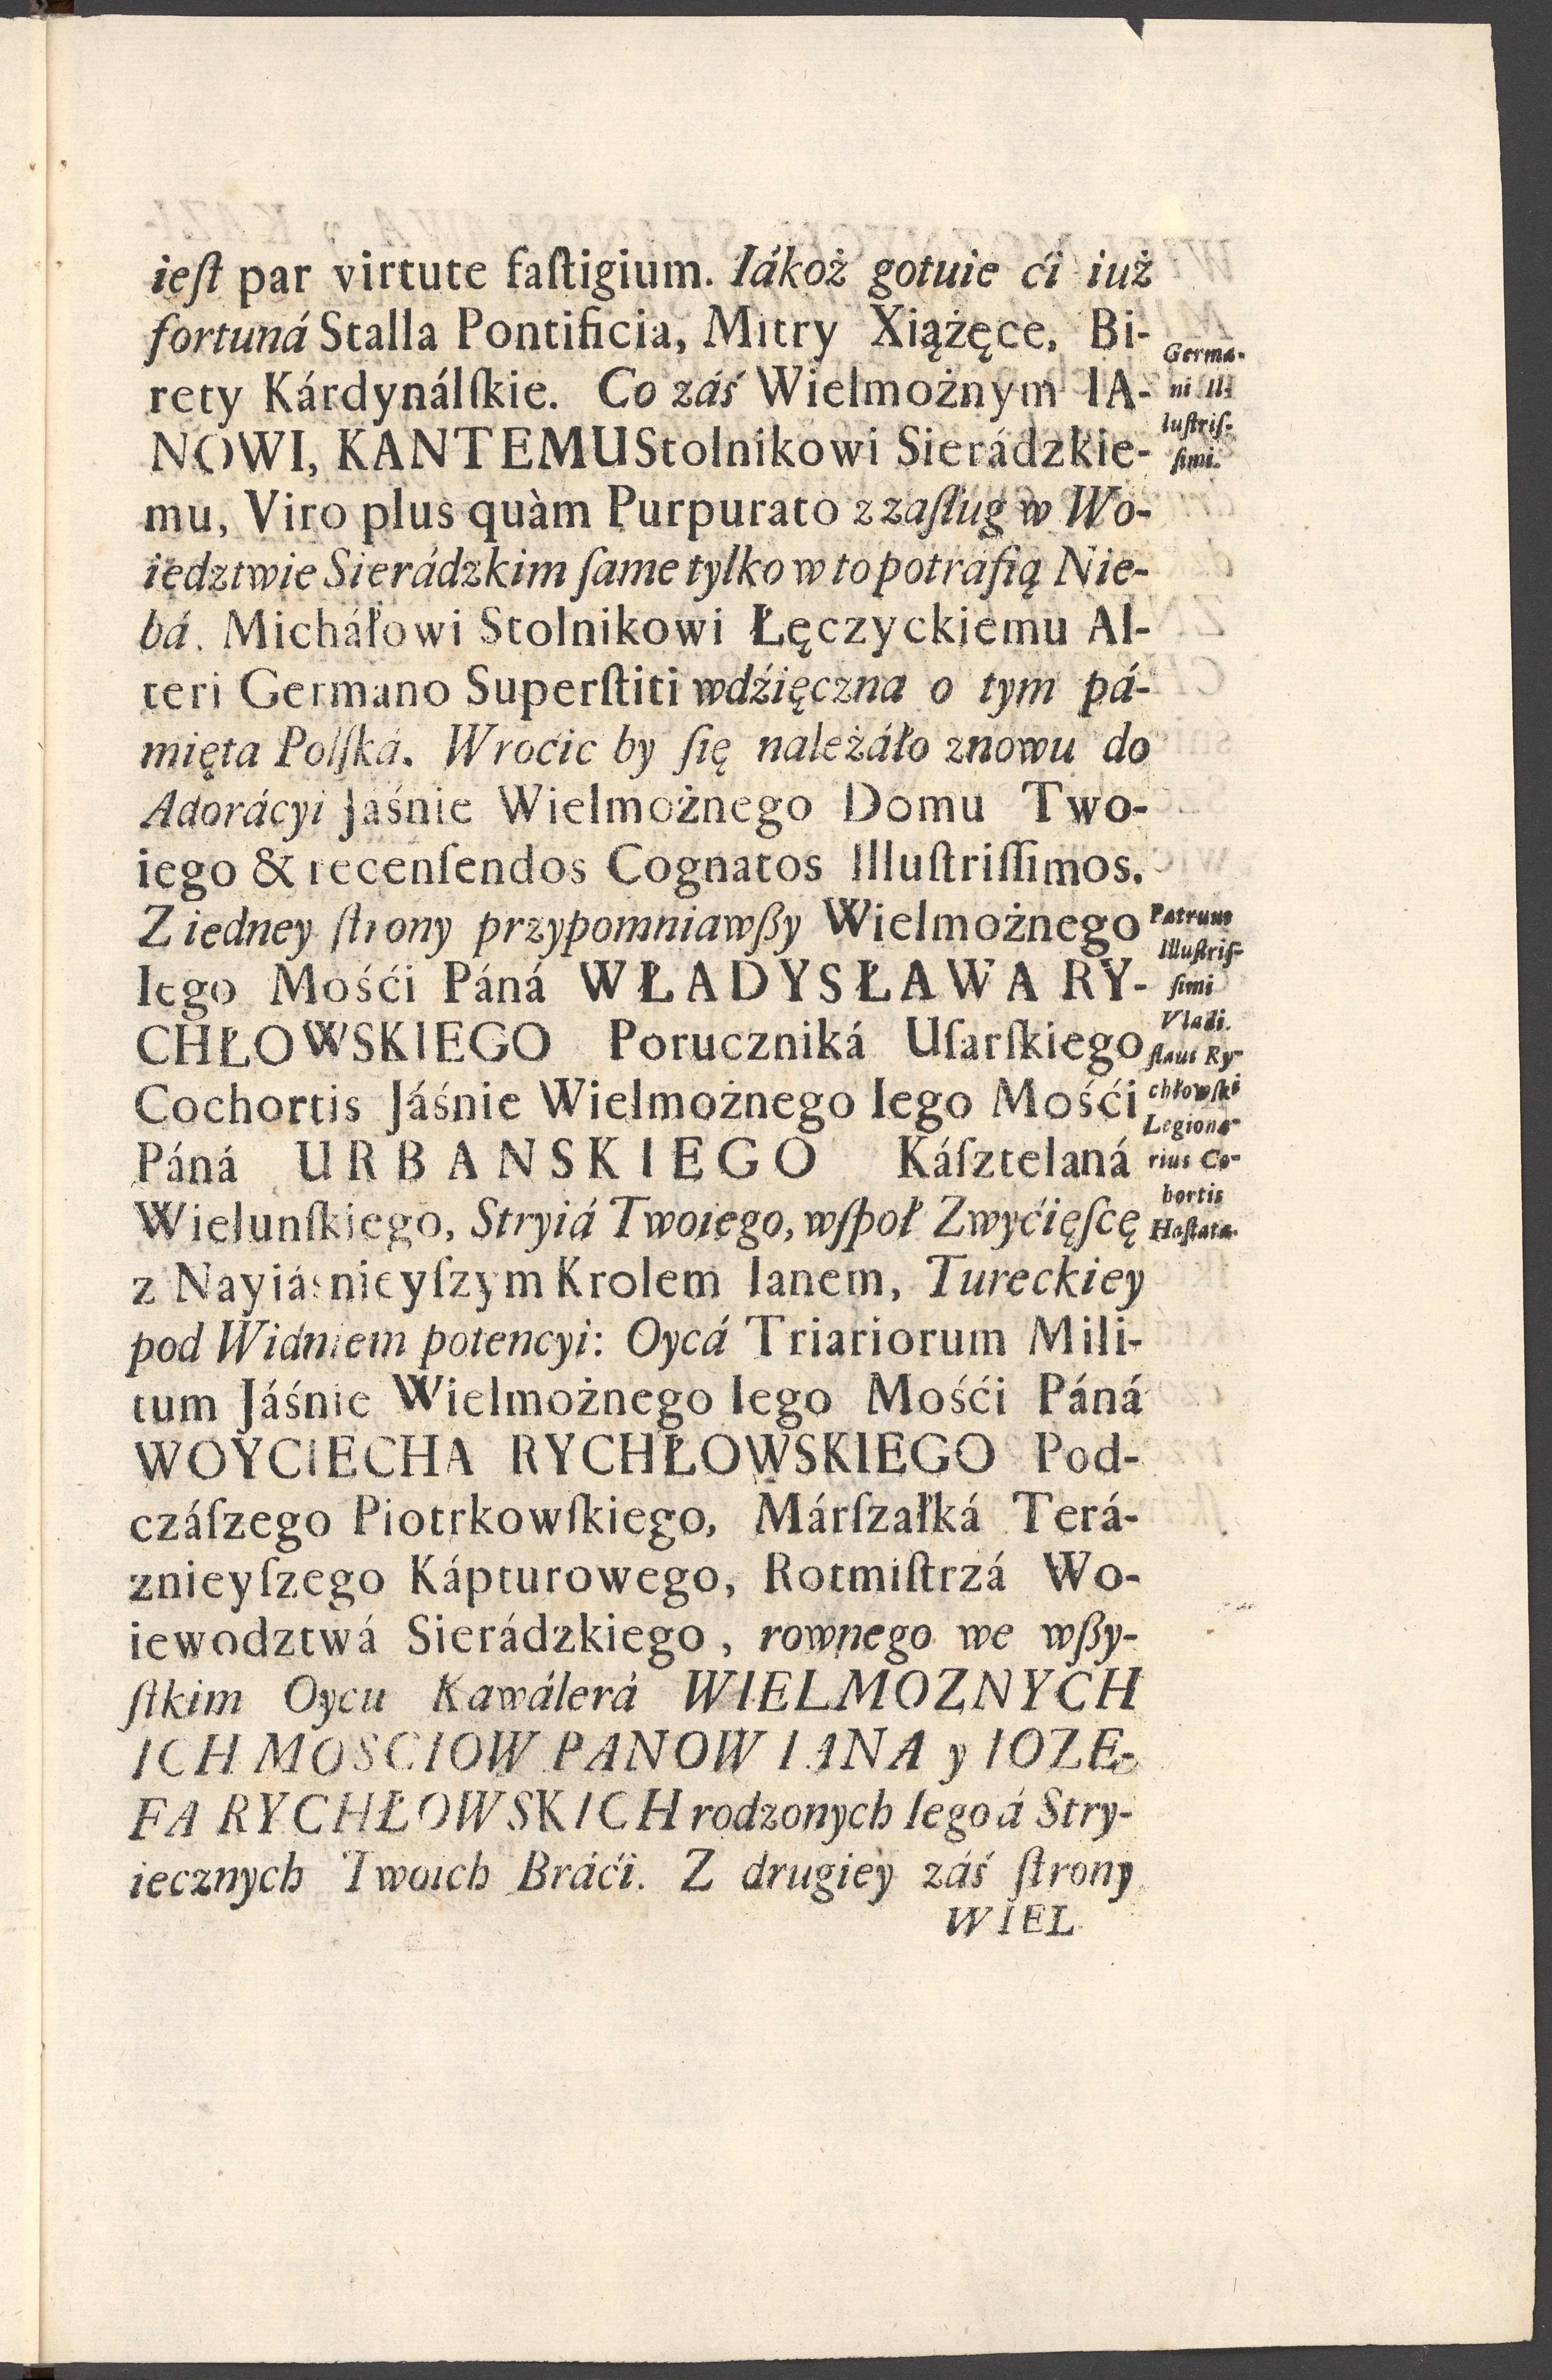 ieſt par virtute faſtigium. Iákoż gotuie ći iuż
fortuná Stalla Pontificia, Mitry Xiążęce, Bi-
rety Kárdynálſkie. Co záś Wielmożnym IA-
NOWI, KANTEMU Stolnikowi Sierádzkie-
mu, Viro plus quàm Purpurato z zaſług w Wo-
iedztwie Sierádzkim ſame tylko w to potrafią Nie-
bá. Micháłowi Stolnikowi Łęczyckiemu Al-
teri Germano Superſtiti wdźięczna o tym pá-
mięta Polſká. Wroćic by ſię należáło znowu do
Adorácyi Jaśnie Wielmożnego Domu Two-
iego & recenſendos Cognatos Illuſtriſſimos.
Z iedney ſtrony przypomniawßy Wielmożnego
Iego Mośći Páná WŁADYSŁAWA RY-
CHŁOWSKIEGO Poruczniká Uſarſkiego
Cochortis Jáśnie Wielmożnego Iego Mośći
Páná URBANSKIEGO Káſztelaná
Wielunſkiego, Stryiá Twoiego, wſpoł Zwyćięſcę
z Nayiáśnieyſzym Krolem Ianem, Tureckiey
pod Widniem potencyi: Oycá Triariorum Mili-
tum Jáśnie Wielmożnego Iego Mośći Páná
WOYCIECHA RYCHŁOWSKIEGO Pod-
czáſzego Piotrkowſkiego, Márſzałká Terá-
znieyſzego Kápturowego, Rotmiſtrzá Wo-
iewodztwá Sierádzkiego, rownego we wßy-
ſtkim Oycu Kawálerá WIELMOZNYCH
ICH MOSCIOW PANOW IANA y IOZE-
FA RYCHŁOWSKICH rodzonych Iego á Stry-
iecznych Twoich Bráći. Z drugiey záś ſtrony
WIEL
Germa-
ni Il-
luſtriſ-
ſimi.
Patruus
Illuſtriſ-
ſimi
Vladi.
ſlaus Ry-
chłowſki
Legiona-
rius Co-
hortis
Haſtata-